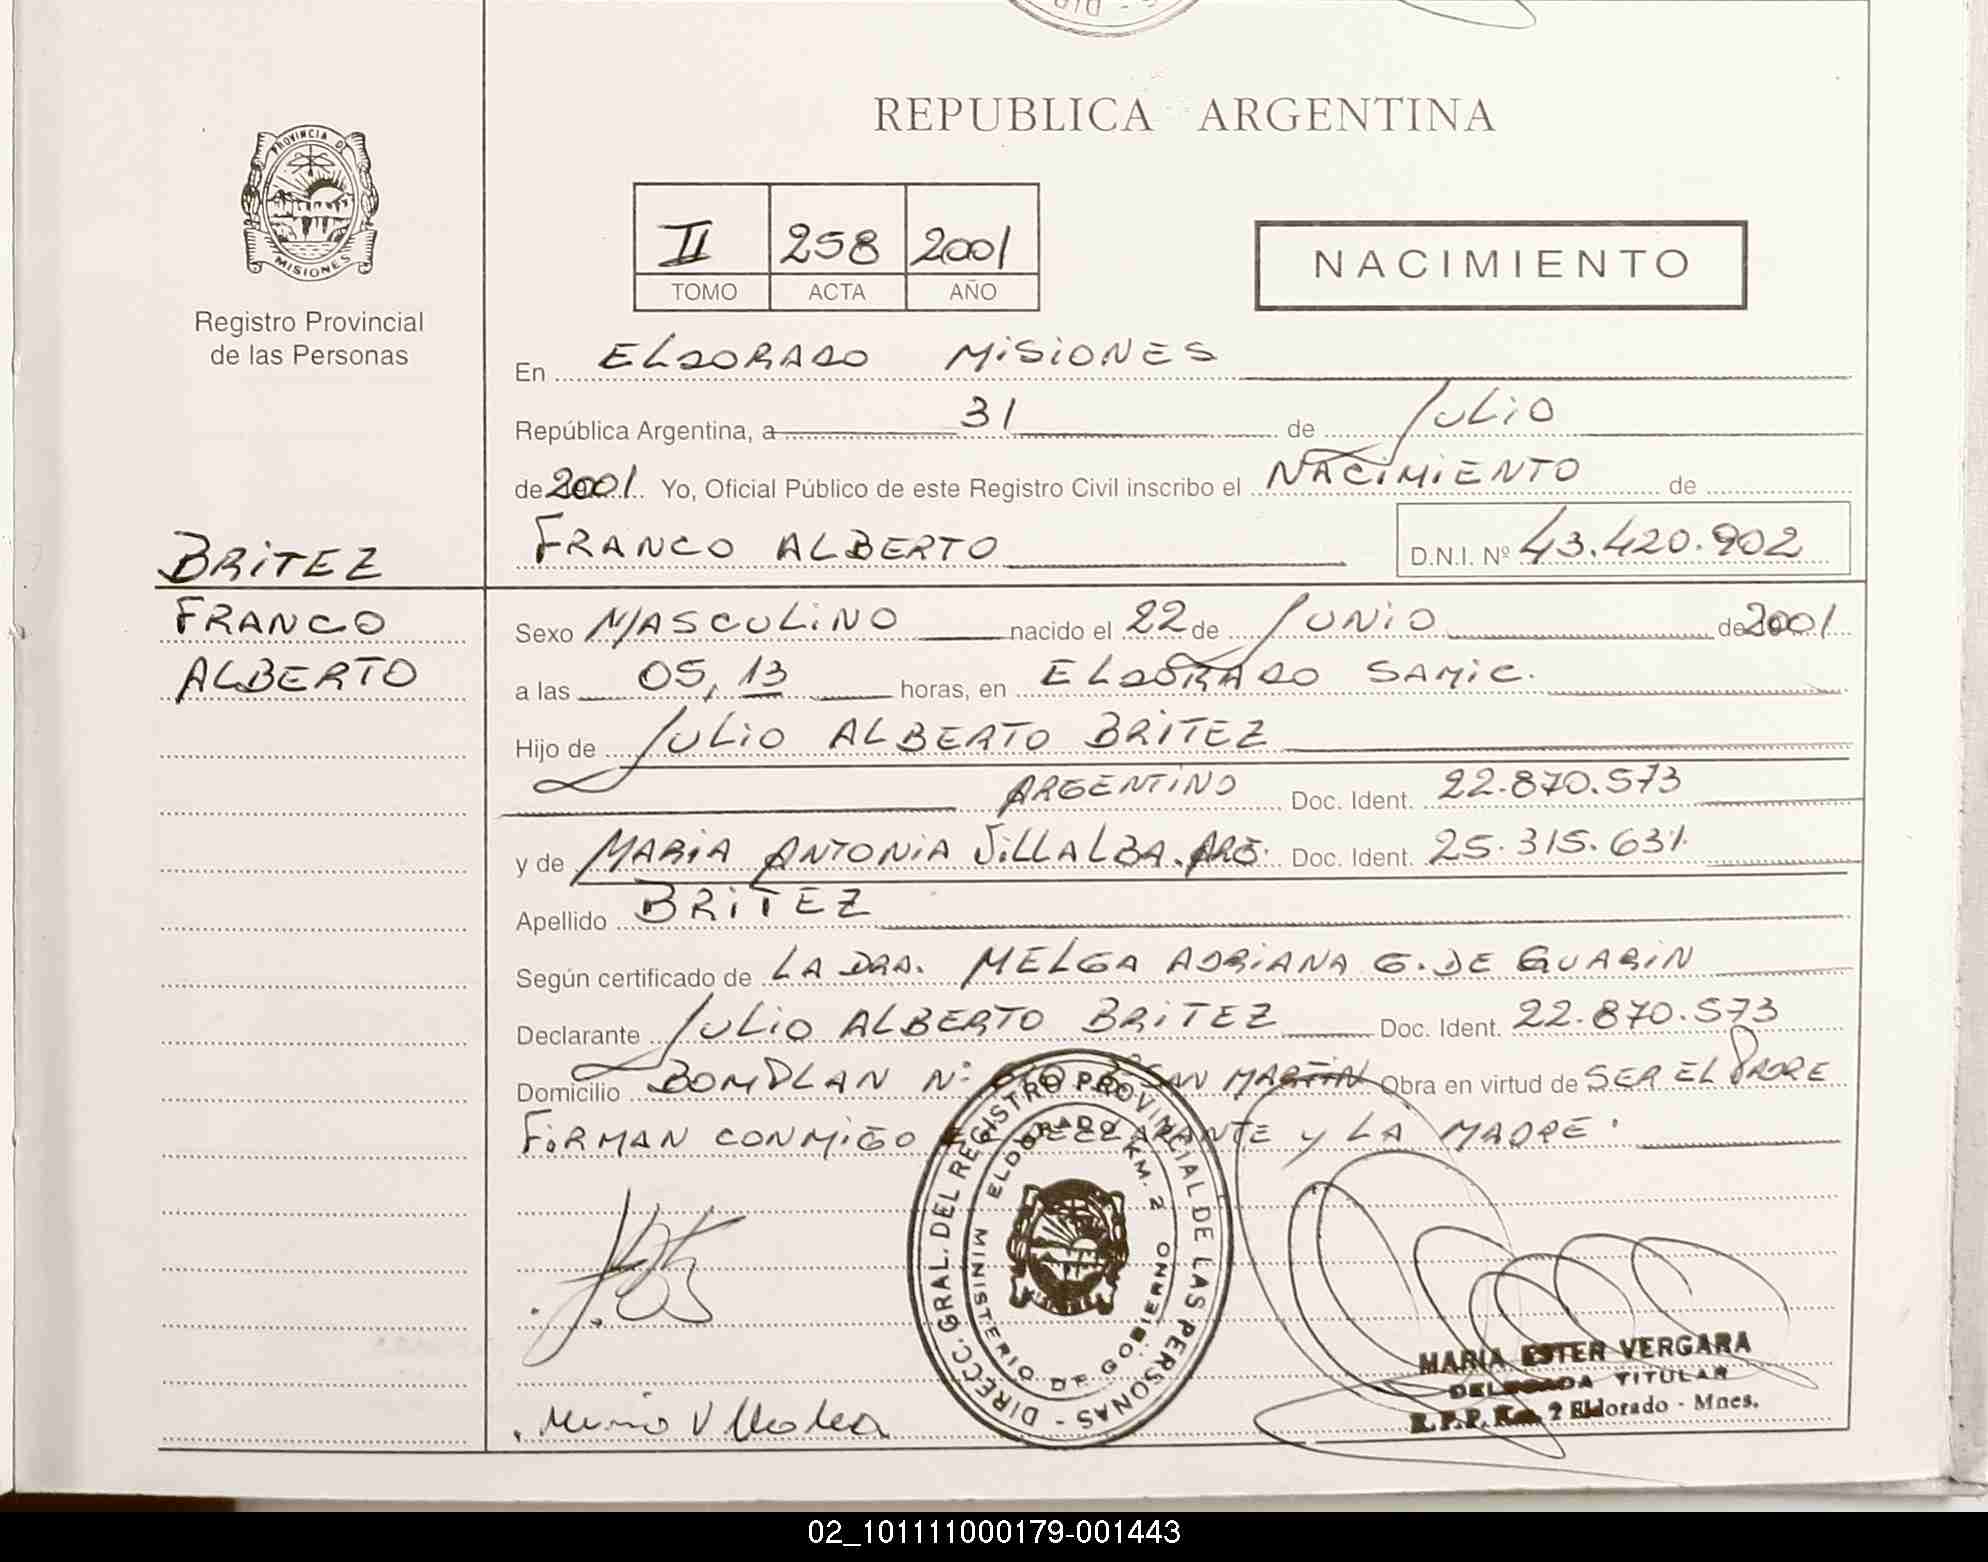 REPUBLICA ARGENTINA
PROVINCIA DE
MISIONES
Registro Provincial
de las Personas
II 258 2001
TOMO ACTA AÑO
NACIMIENTO
En ELDORADO MISIONES
República Argentina, a 31 de JULIO
de 2001. Yo, Oficial Público de este Registro Civil inscribo el NACIMIENTO de
BRITEZ
FRANCO ALBERTO D.N.I. Nº 43.420.902
FRANCO
ALBERTO
Sexo MASCULINO nacido el 22 de JUNIO de 2001
a las 05,13 horas, en ELDORADO SAMIC.
Hijo de JULIO ALBERTO BRITEZ
ARGENTINO Doc. Ident. 22.870.573
y de MARIA ANTONIA VILLALBA. ARG. Doc. Ident. 25.315.631.
Apellido BRITEZ
Según certificado de LA DRA. MELGA ADRIANA G. DE GUARIN
Declarante JULIO ALBERTO BRITEZ Doc. Ident. 22.870.573
Domicilio BOMPLAN Nº SAN MARTIN Obra en virtud de SER EL PADRE
FIRMAN CONMIGO EL DECLARANTE Y LA MADRE.
DIRECC. GRAL. DEL REGISTRO PROVINCIAL DE LAS PERSONAS -
MINISTERIO DE GOBIERNO
ELDORADO KM. 2
MARIA ESTER VERGARA
DELEGADA TITULAR
R.P.P. Km. 2 Eldorado - Mnes.
02_101111000179-001443